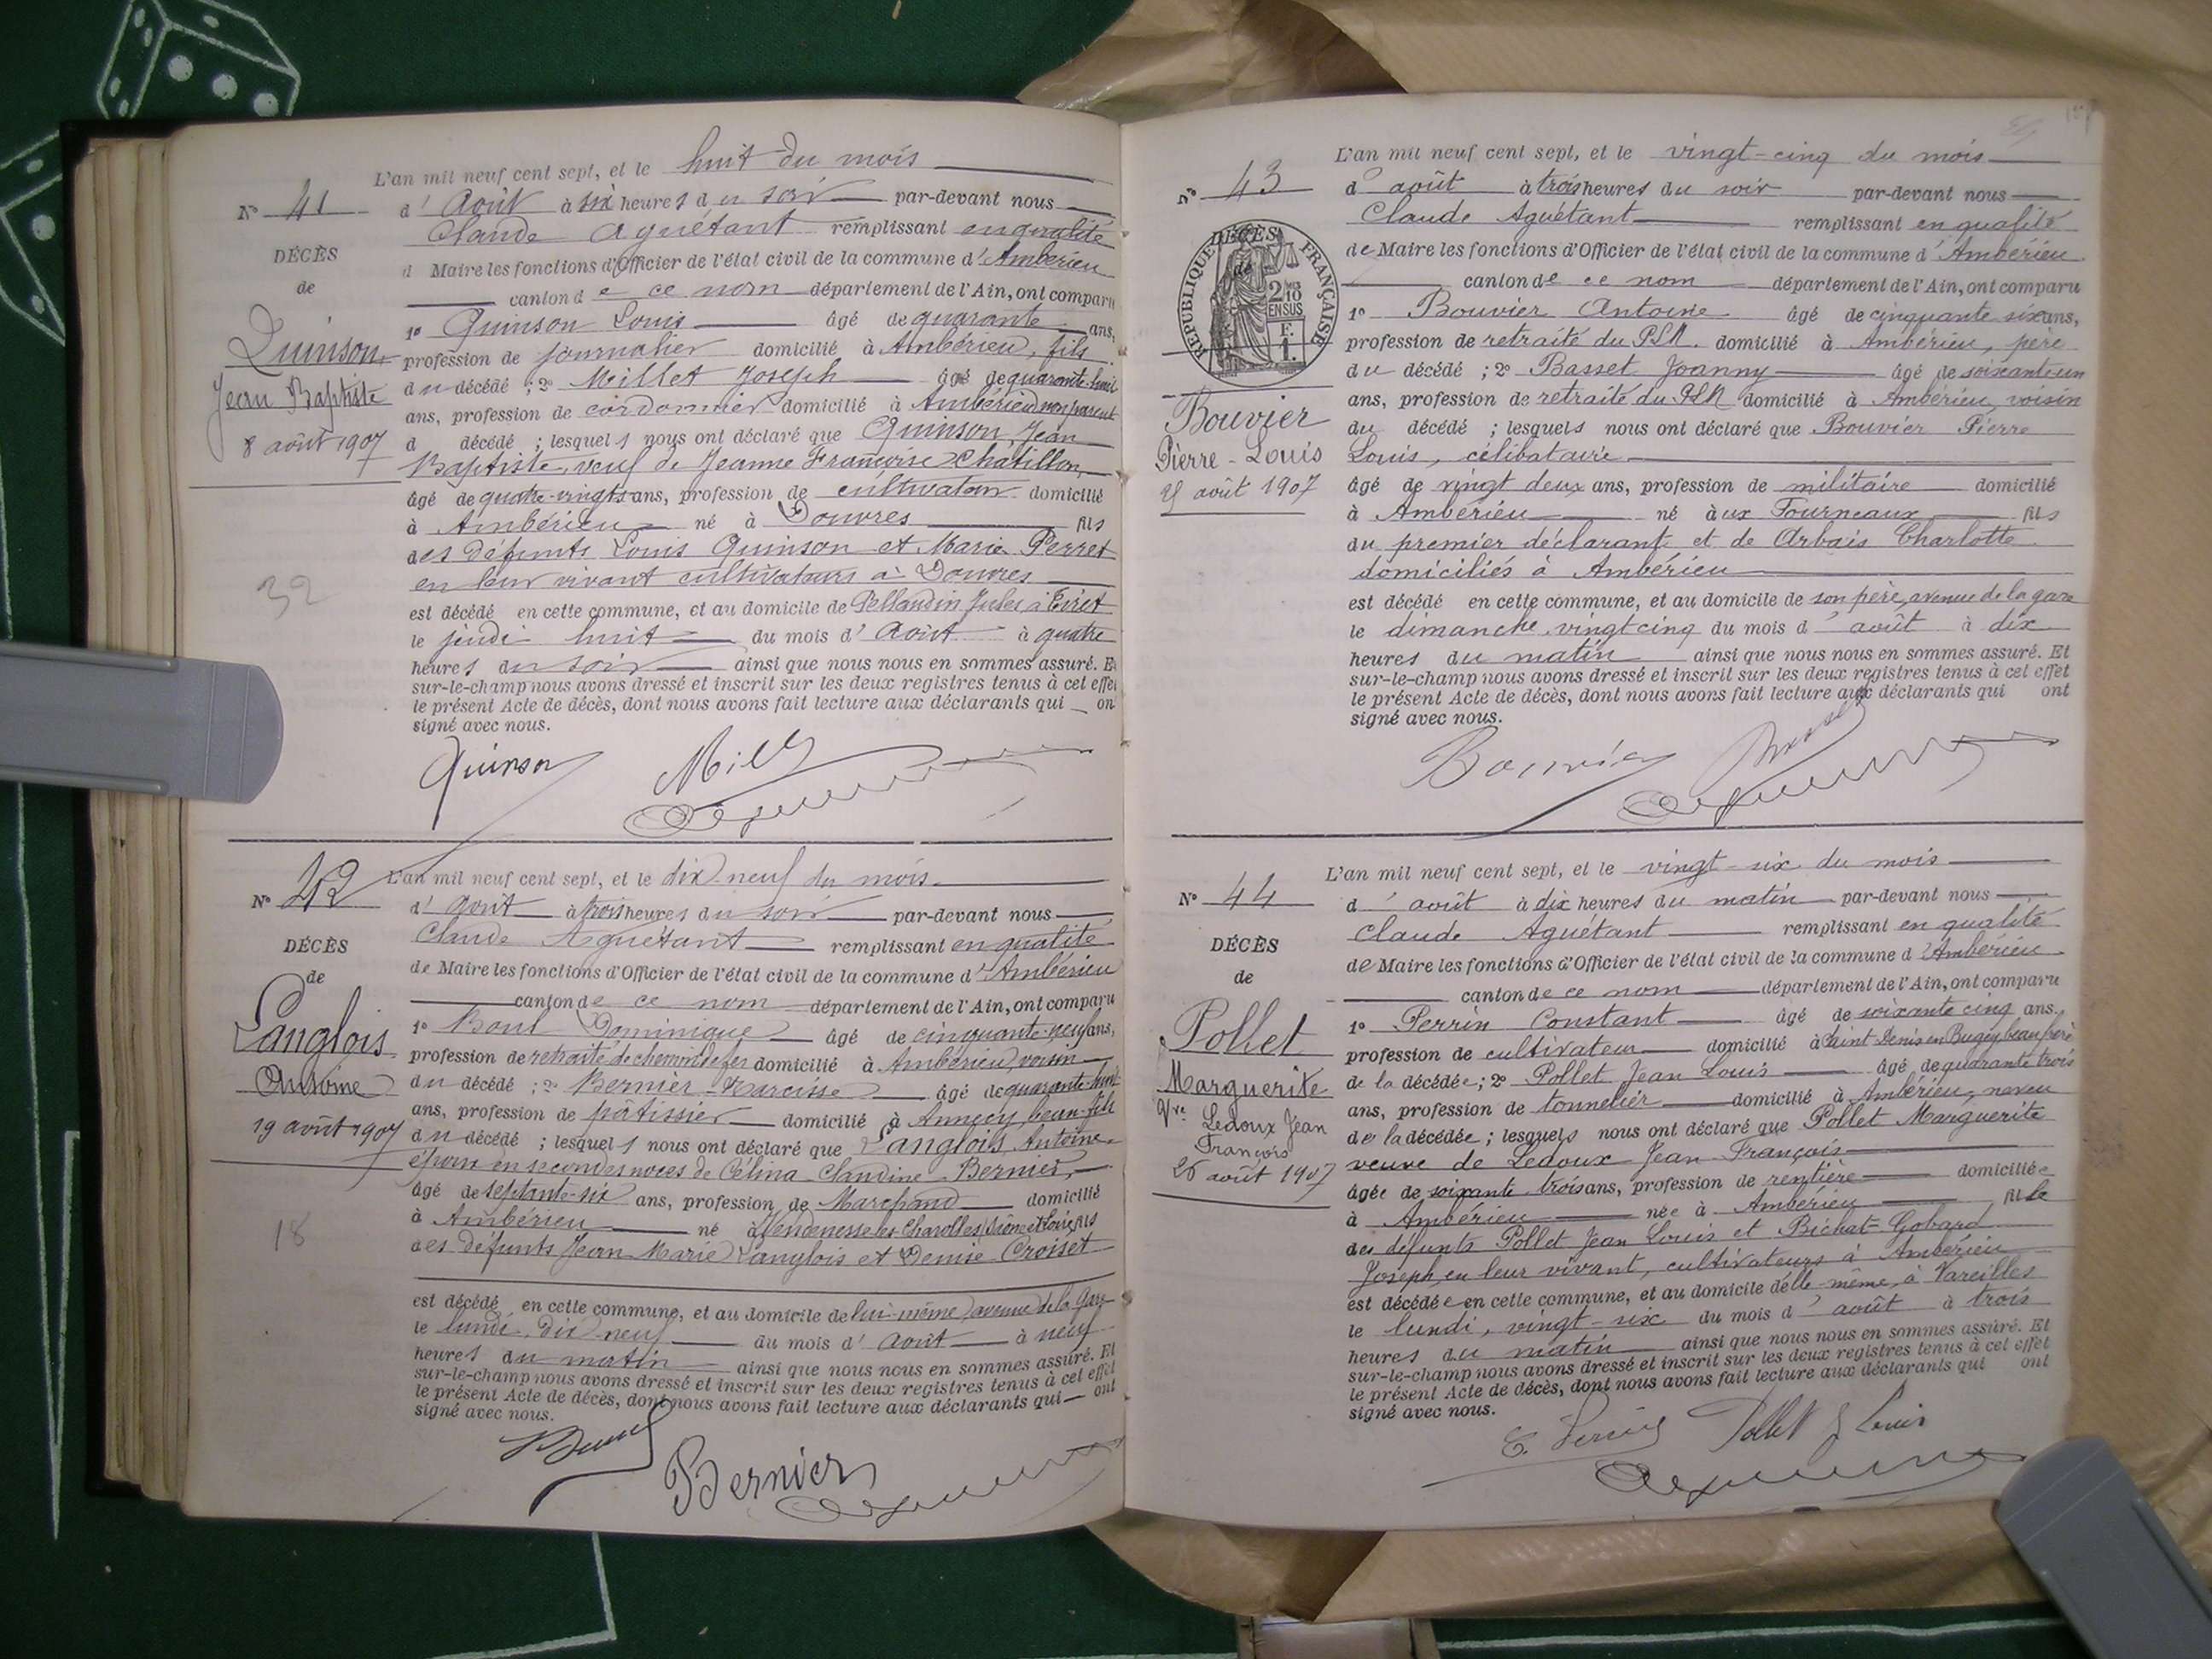 L'an mil neuf cent sept, et le huit du mois
N° 41
d'Août à six heures du soir par-devant nous
Claude Aguétant remplissant en qualité
DÉCÈS
d Maire les fonctions d'Officier de l'état civil de la commune d'Ambérieu
de
canton de ce nom département de l'Ain, ont comparu
1° Quinson Louis âgé de quarante ans,
Quinson
profession de journalier domicilié à Ambérieu, fils
Jean Baptiste
du décédé ; 2° Millet Joseph âgé de quarante-huit
ans, profession de cordonnier domicilié à Ambérieu non parent
8 août 1907
d décédé ; lesquels nous ont déclaré que Quinson, Jean
Baptiste, veuf de Jeanne Françoise Chatillon,
âgé de quatre-vingts ans, profession de cultivateur domicilié
à Ambérieu né à Douvres fils
des défunts Louis Quinson et Marie Perret
en leur vivant cultivateurs à Douvres
32
est décédé en cette commune, et au domicile de Pellaudin Jules à Tiret
le jeudi huit du mois d'Août à quatre
heures du soir ainsi que nous nous en sommes assuré. Et
sur-le-champ nous avons dressé et inscrit sur les deux registres tenus à cet effet
le présent Acte de décès, dont nous avons fait lecture aux déclarants qui ont
signé avec nous.
Quinson
L'an mil neuf cent sept, et le dix-neuf du mois
N° 42
d'Août à trois heures du soir par-devant nous
Claude Aguétant remplissant en qualité
DÉCÈS
de Maire les fonctions d'Officier de l'état civil de la commune d'Ambérieu
de
canton de ce nom département de l'Ain, ont comparu
1° Dominique âgé de cinquante-neuf ans,
Langlois
profession de retraité de chemin de fer domicilié à Ambérieu, voisin
Antoine
du décédé ; 2° Bernier Narcisse âgé de quarante-huit
ans, profession de pâtissier domicilié à Annecy, beau-fils
19 août 1907
du décédé ; lesquels nous ont déclaré que Langlois, Antoine
époux en secondes noces de Célina Claudine Bernier,
âgé de septante-six ans, profession de Marchand domicilié
à Ambérieu né à Vendenesse-les-Charolles (Saône et Loire) fils
des défunts Jean Marie Langlois et Denise Croiset
18
est décédé en cette commune, et au domicile de lui-même, avenue de la Gare
le lundi, dix-neuf du mois d'août à neuf
heures du matin ainsi que nous nous en sommes assuré. Et
sur-le-champ nous avons dressé et inscrit sur les deux registres tenus à cet effet
le présent Acte de décès, dont nous avons fait lecture aux déclarants qui ont
signé avec nous.
Bernier
L'an mil neuf cent sept, et le vingt-cinq du mois
N° 43
d'août à trois heures du soir par-devant nous
Claude Aguétant remplissant en qualité
DÉCÈS
de
RÉPUBLIQUE FRANÇAISE
2/10 EN SUS
F. 1.
de Maire les fonctions d'Officier de l'état civil de la commune d'Ambérieu
canton de ce nom département de l'Ain, ont comparu
1° Bouvier Antoine âgé de cinquante six ans,
profession de retraité du PLM. domicilié à Ambérieu, père
du décédé ; 2° Basset Joanny âgé de soixante un
ans, profession de retraité du PLM domicilié à Ambérieu, voisin
Bouvier
du décédé ; lesquels nous ont déclaré que Bouvier Pierre
Pierre-Louis
Louis, célibataire
25 août 1907
âgé de vingt deux ans, profession de militaire domicilié
à Ambérieu né aux Fourneaux fils
du premier déclarant et de Arbais Charlotte
domiciliés à Ambérieu
est décédé en cette commune, et au domicile de son père, avenue de la gare
le dimanche, vingt cinq du mois d'août à dix
heures du matin ainsi que nous nous en sommes assuré. Et
sur-le-champ nous avons dressé et inscrit sur les deux registres tenus à cet effet
le présent Acte de décès, dont nous avons fait lecture aux déclarants qui ont
signé avec nous.
Bouvier Basset
L'an mil neuf cent sept, et le vingt-six du mois
N° 44
d'août à dix heures du matin par-devant nous
Claude Aguétant remplissant en qualité
DÉCÈS
de Maire les fonctions d'Officier de l'état civil de la commune d'Ambérieu
de
canton de ce nom département de l'Ain, ont comparu
1° Perrin Constant âgé de soixante cinq ans.
Pollet
profession de cultivateur domicilié à Saint Denis en Bugey beau frère
Marguerite
de la décédée ; 2° Pollet Jean Louis âgé de quarante trois
Vve Ledoux Jean
ans, profession de tonnelier domicilié à Ambérieu, neveu
François
de la décédée ; lesquels nous ont déclaré que Pollet Marguerite
26 août 1907
veuve de Ledoux Jean François
âgée de soixante trois ans, profession de rentière domiciliée
à Ambérieu née à Ambérieu fille
des défunts Pollet Jean Louis et Bichat-Gobard
Joseph, en leur vivant, cultivateurs à Ambérieu
est décédée en cette commune, et au domicile d'elle-même, à Vareilles
le lundi, vingt-six du mois d'août à trois
heures du matin ainsi que nous nous en sommes assuré. Et
sur-le-champ nous avons dressé et inscrit sur les deux registres tenus à cet effet
le présent Acte de décès, dont nous avons fait lecture aux déclarants qui ont
signé avec nous.
Pollet J Louis